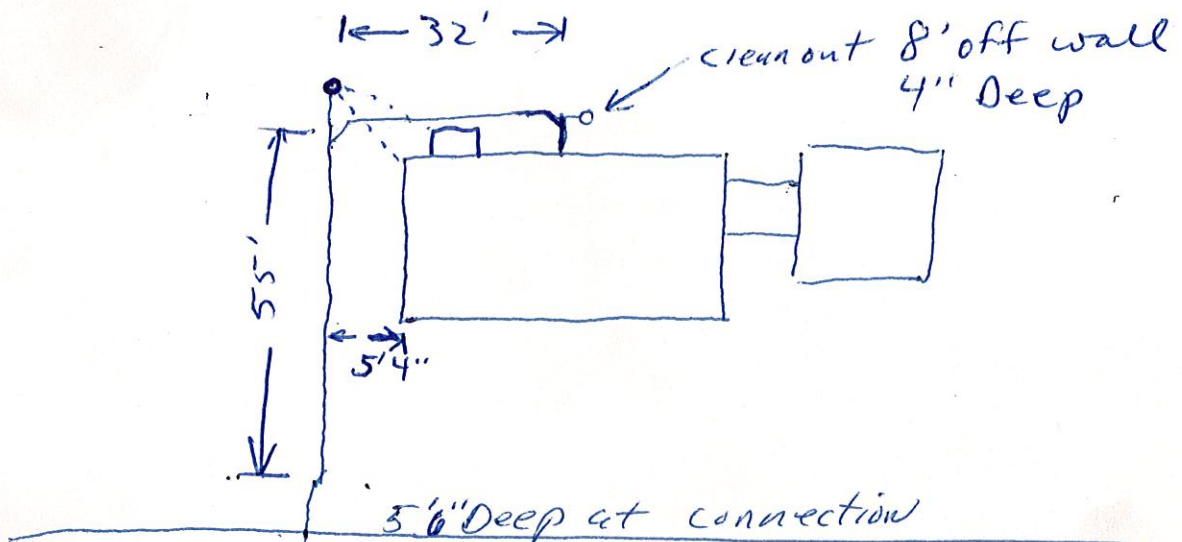 32'
cleanout 8' off wall
4" Deep
55'
5'4"
5'6" Deep at connection